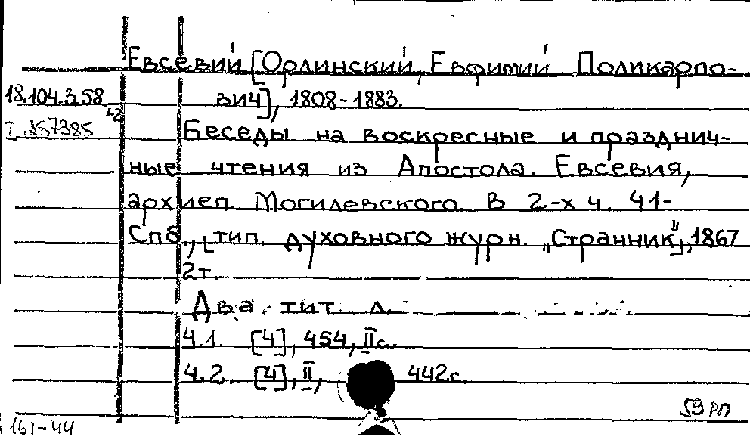 Евсевий [Орлинский, Евфимий Поликарпо-
18.104.3.58 вич], 1808-1883.
Беседы на воскресные и празднич-
ные чтения из Апостола. Евсевия,
архиеп. Могилевского. В 2-х ч. Ч1-
Спб., [тип. духовного журн. „Странник"], 1867
2т.
Два тит. л.
Ч.1. [4], 454, II с.
Ч.2. [4], II, 442с.
59 РП
161-44